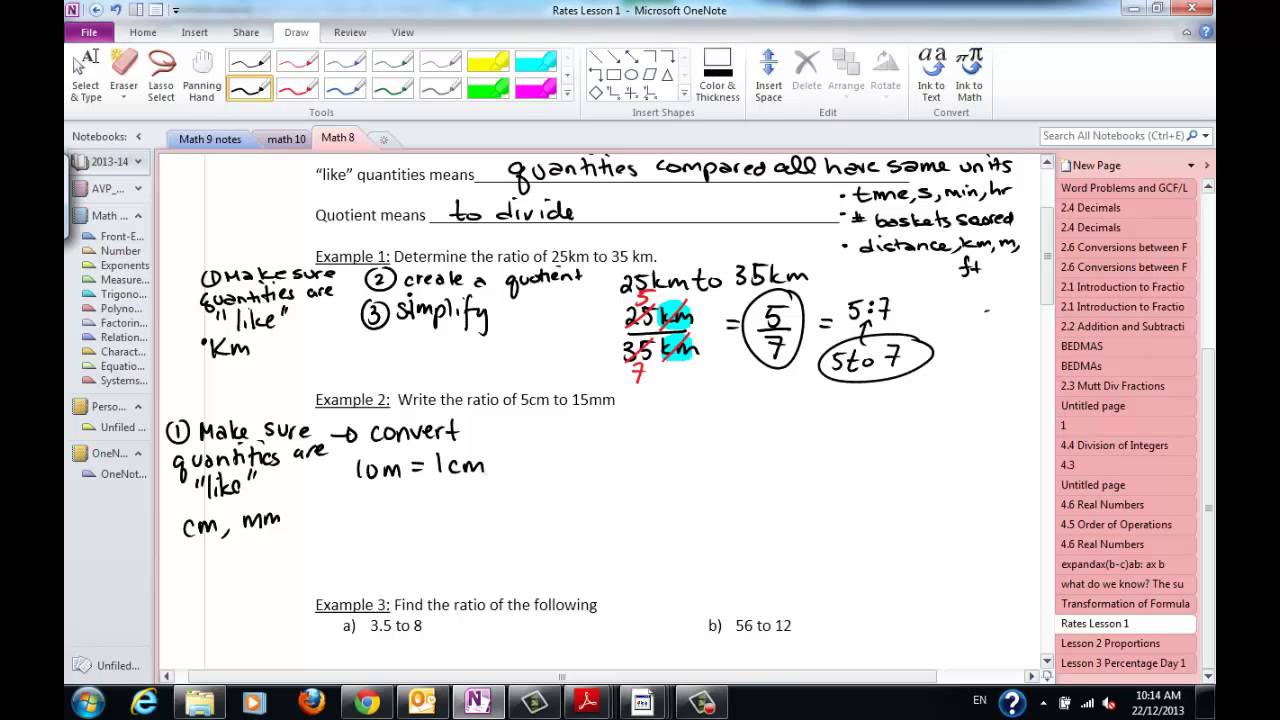 Rates Lesson 1 - Microsoft OneNote
File Home Insert Share Draw Review View
Select & Type
Eraser
Lasso Select
Panning Hand
Color & Thickness
Insert Space
Delete
Arrange
Rotate
Ink to Text
Ink to Math
Tools Insert Shapes Edit Convert
Notebooks:
Math 9 notes math 10 Math 8
Search All Notebooks (Ctrl+E)
2013-14
AVP_...
Math ...
Front-E...
Number
Exponents
Measure...
Trigono...
Polyno...
Factorin...
Relation...
Charact...
Equatio...
Systems...
Perso...
Unfiled ...
OneN...
OneNot...
Unfiled...
"like" quantities means quantities compared all have same units
• time, s, min, hr
Quotient means to divide
• # baskets scored
• distance, km, m,
ft
Example 1: Determine the ratio of 25km to 35 km.
① Make sure
quantities are
"like"
• Km
② create a quotient
③ simplify
25km to 35km
5
25 km
35 km
7
= 5/7 = 5:7
5 to 7
Example 2: Write the ratio of 5cm to 15mm
① Make sure → convert
quantities are
"like"
10m = 1cm
cm, mm
Example 3: Find the ratio of the following
a) 3.5 to 8 b) 56 to 12
New Page
Word Problems and GCF/L
2.4 Decimals
2.4 Decimals
2.6 Conversions between F
2.6 Conversions between F
2.1 Introduction to Fractio
2.1 Introduction to Fractio
2.2 Addition and Subtracti
BEDMAS
BEDMAs
2.3 Mutt Div Fractions
Untitled page
1
4.4 Division of Integers
4.3
Untitled page
4.6 Real Numbers
4.5 Order of Operations
4.6 Real Numbers
expandax(b-c)ab: ax b
what do we know? The su
Transformation of Formula
Rates Lesson 1
Lesson 2 Proportions
Lesson 3 Percentage Day 1
EN
10:14 AM
22/12/2013